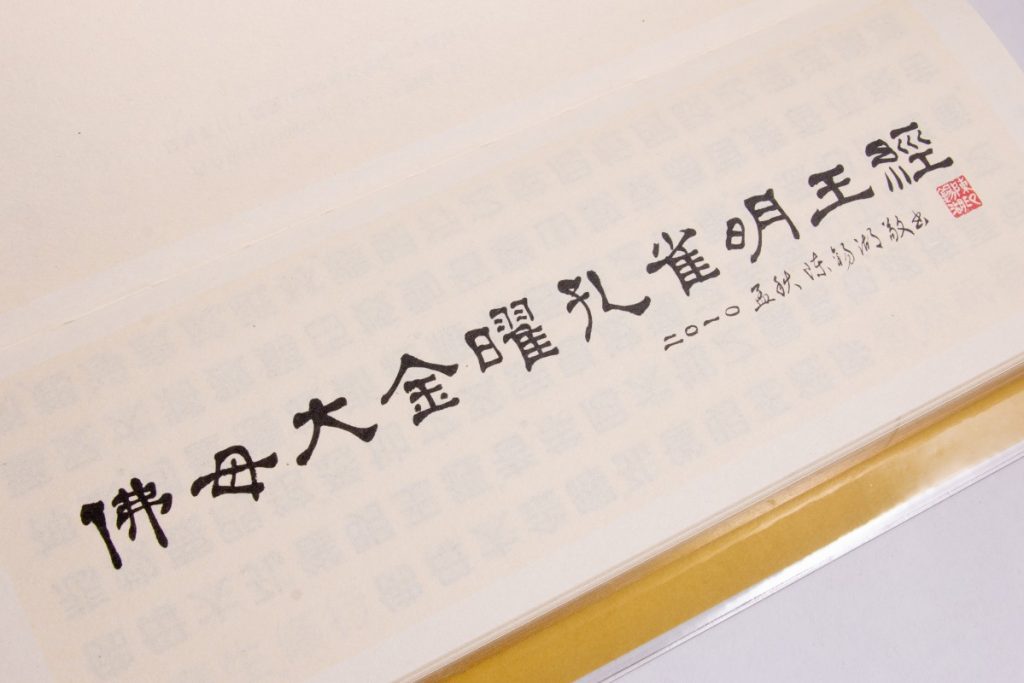 佛母大金曜孔雀明王經
二〇一〇孟秋陈錫湖敬书